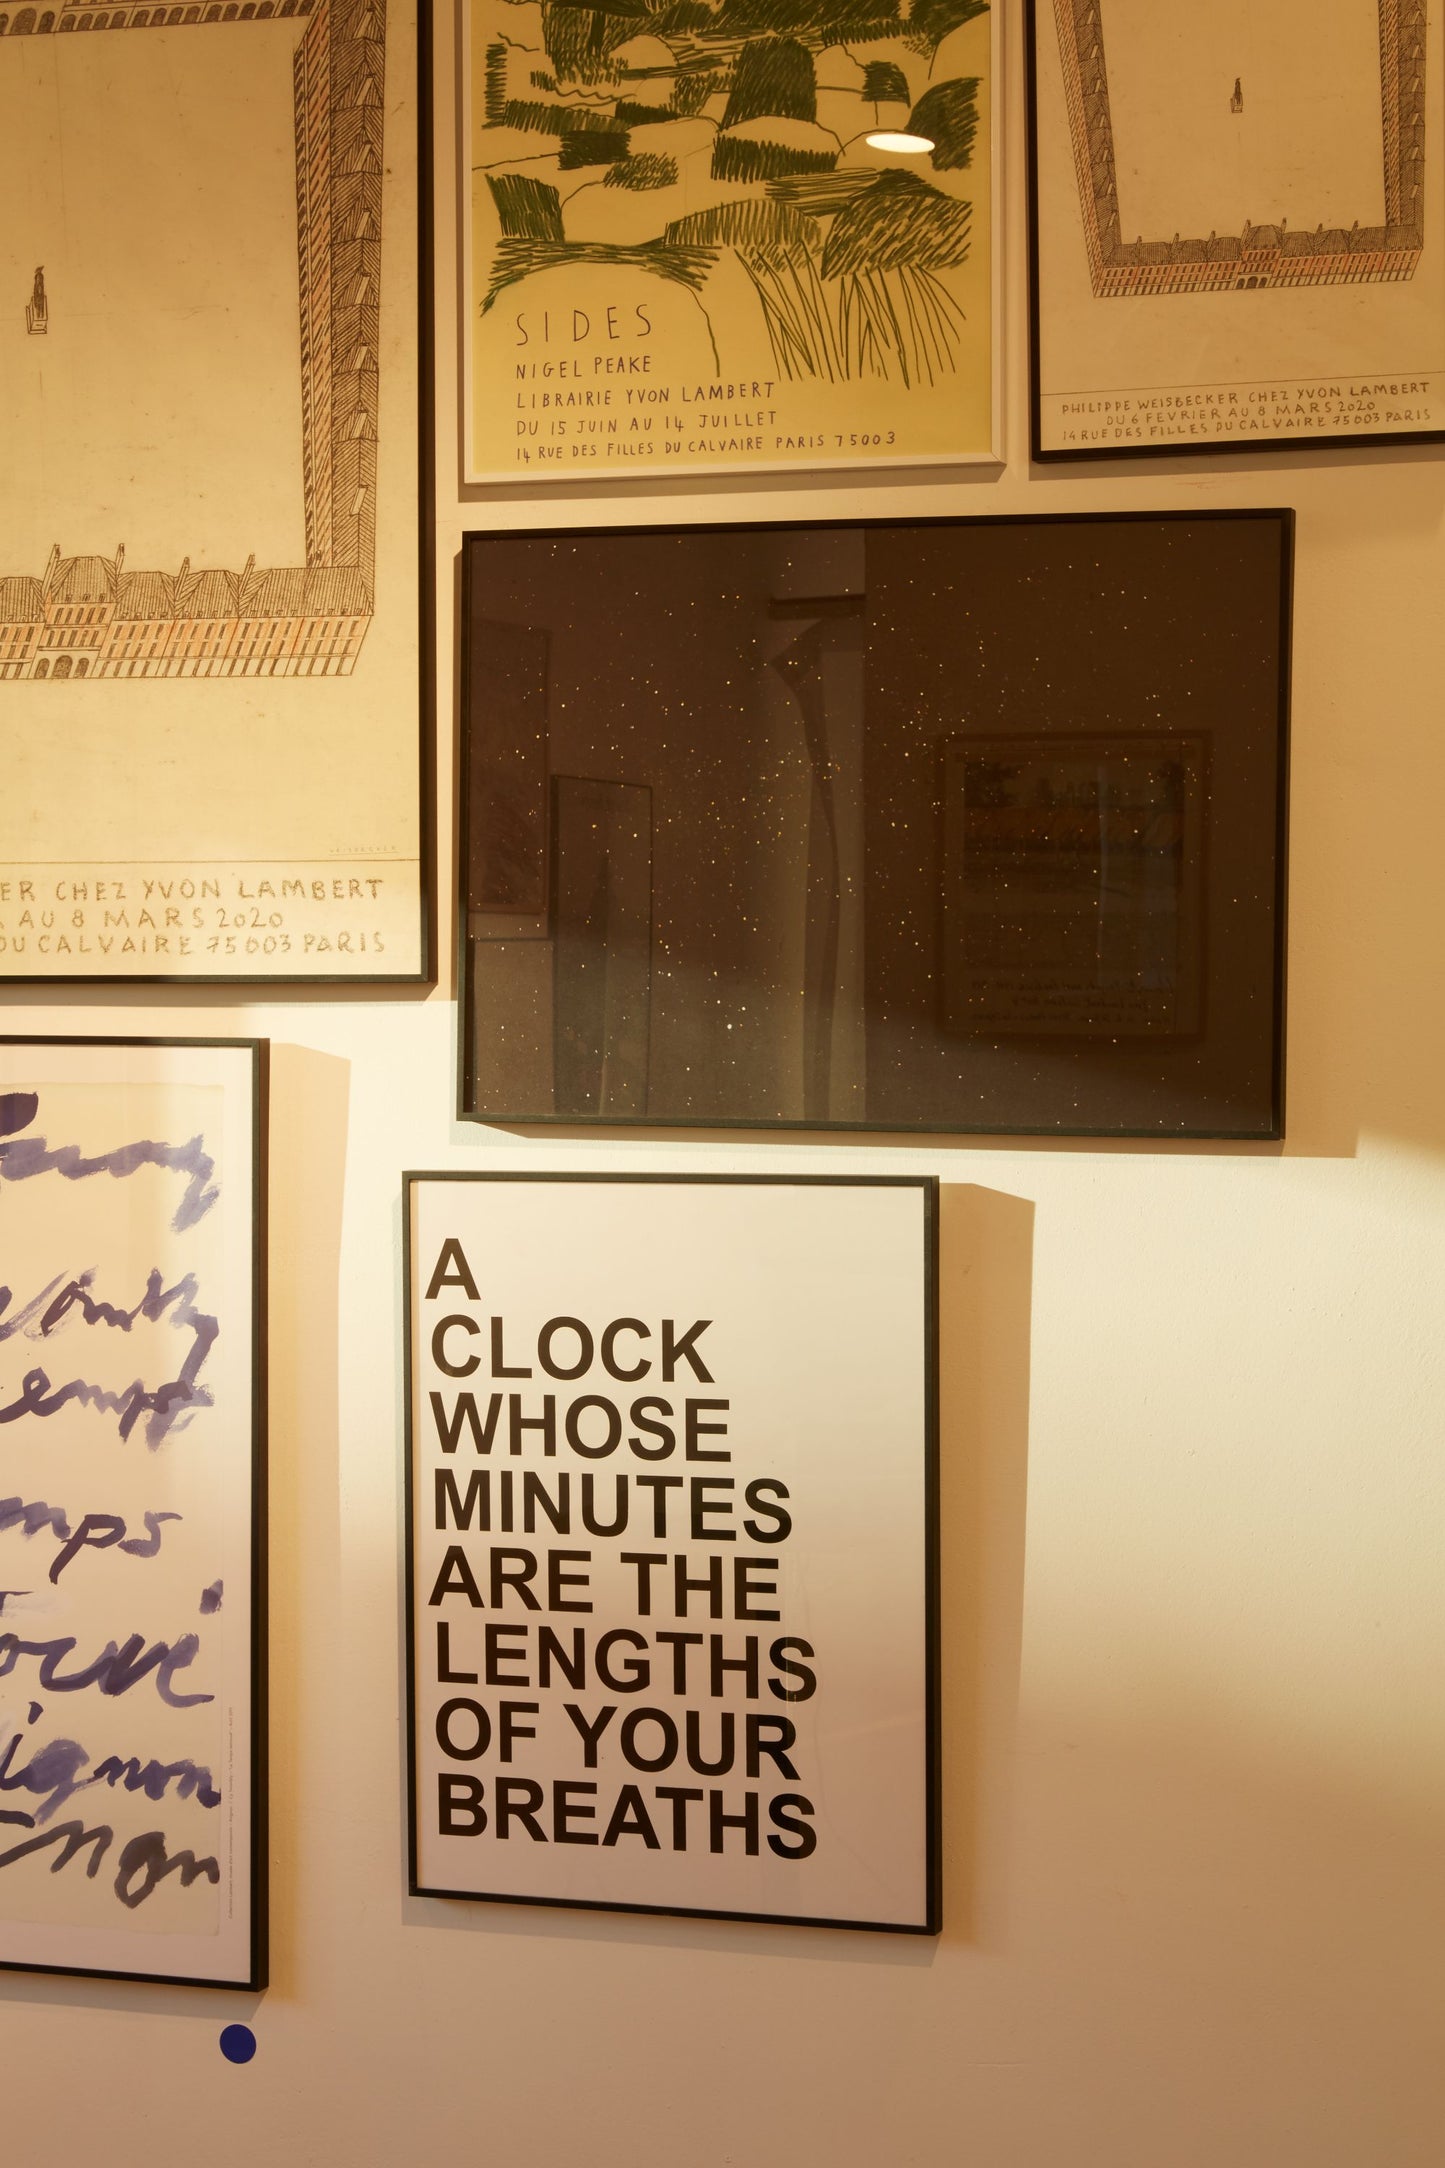 SIDES
NIGEL PEAKE
LIBRAIRIE YVON LAMBERT
DU 15 JUIN AU 14 JUILLET
14 RUE DES FILLES DU CALVAIRE PARIS 75003
PHILIPPE WEISBECKER CHEZ YVON LAMBERT
DU 6 FEVRIER AU 8 MARS 2020
14 RUE DES FILLES DU CALVAIRE 75003 PARIS
ER CHEZ YVON LAMBERT
AU 8 MARS 2020
DU CALVAIRE 75003 PARIS
emps
mps
ignon
A
CLOCK
WHOSE
MINUTES
ARE THE
LENGTHS
OF YOUR
BREATHS